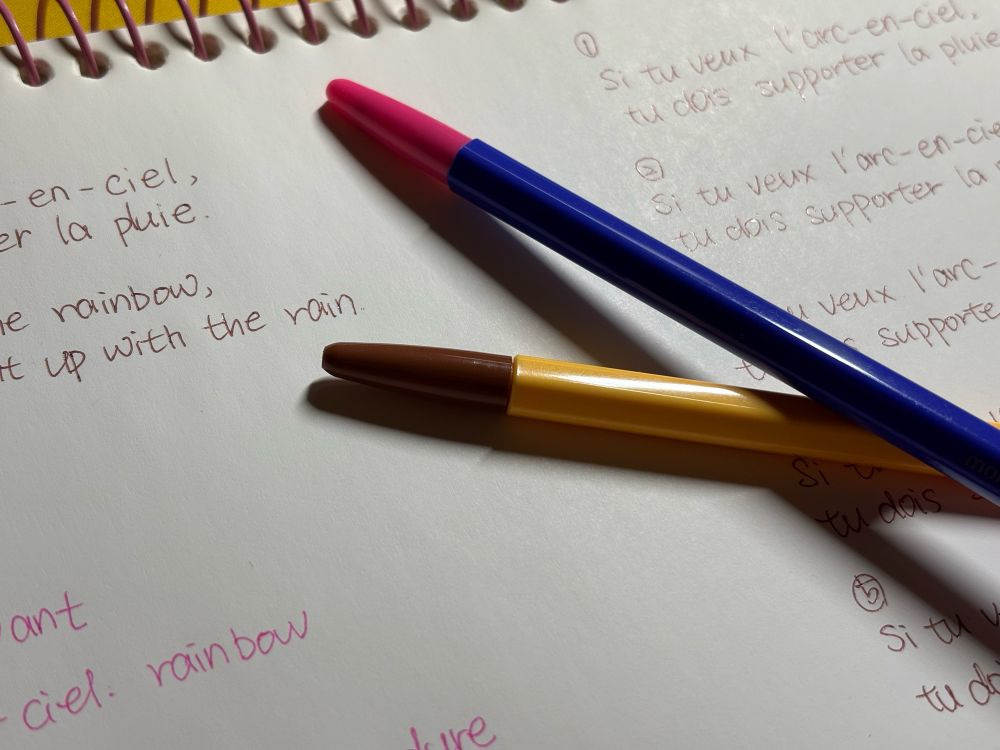 -en-ciel,
er la pluie.
he rainbow,
up with the rain.
ant
-ciel: rainbow
①
Si tu veux l'arc-en-ciel,
tu dois supporter la pluie
②
Si tu veux l'arc-en-cie
tu dois supporter la
tu veux l'arc-
supporte
Si tu
tu dois
⑤
Si tu v
tu do